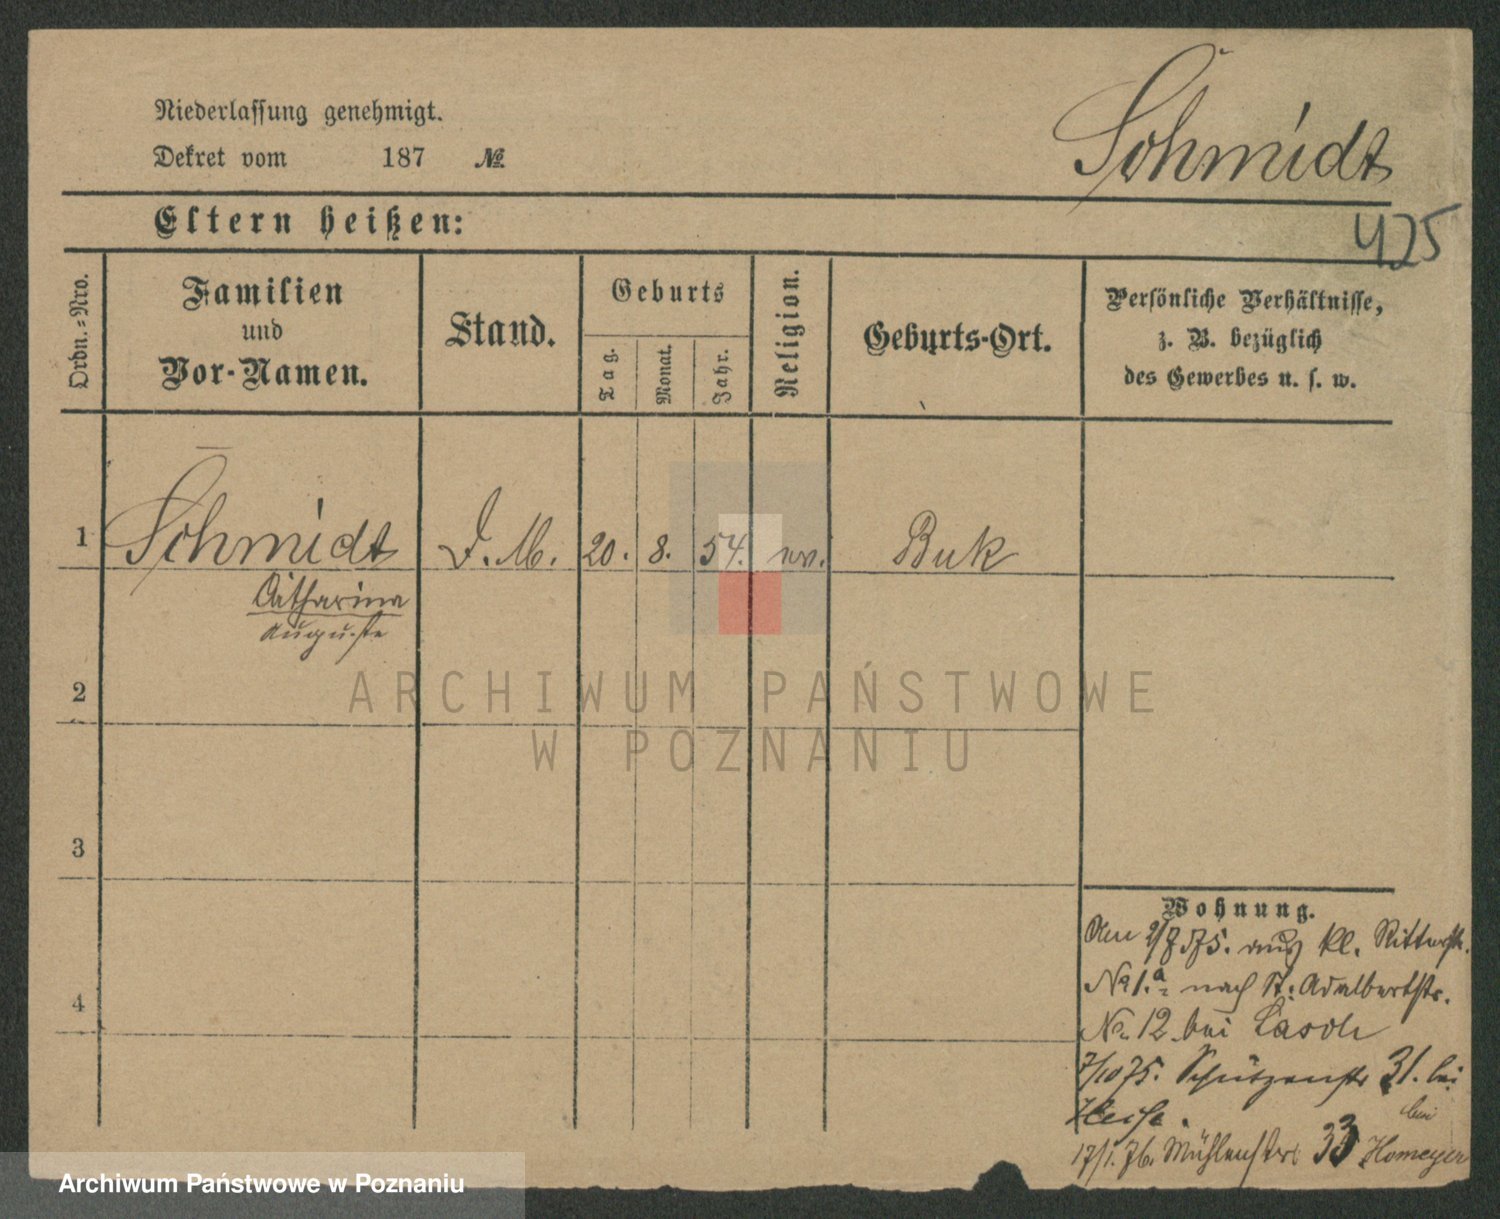 Schmidt
Niederlassung genehmigt.
Dekret vom 187 №
Eltern heißen:
425
Ordn.=Nro.
Familien
und
Vor-Namen.
Stand.
Geburts
Tag.
Monat.
Jahr.
Religion.
Geburts-Ort.
Persönliche Verhältnisse,
z. B. bezüglich
des Gewerbes u. s. w.
1 Schmidt D. M. 20. 8. 54. ev. Buk
Catharina
Auguste
2
3
4
Wohnung.
Den 2/7 75. aus kl. Ritterstr.
No 1.a nach St. Adalbertstr.
No 12 bei Lasch
7/10 75. Schützenstr 31. bei
Heise.
17/1. 76. Mühlenstr 33 bei Homeyer
ARCHIWUM PAŃSTWOWE
W POZNANIU
Archiwum Państwowe w Poznaniu